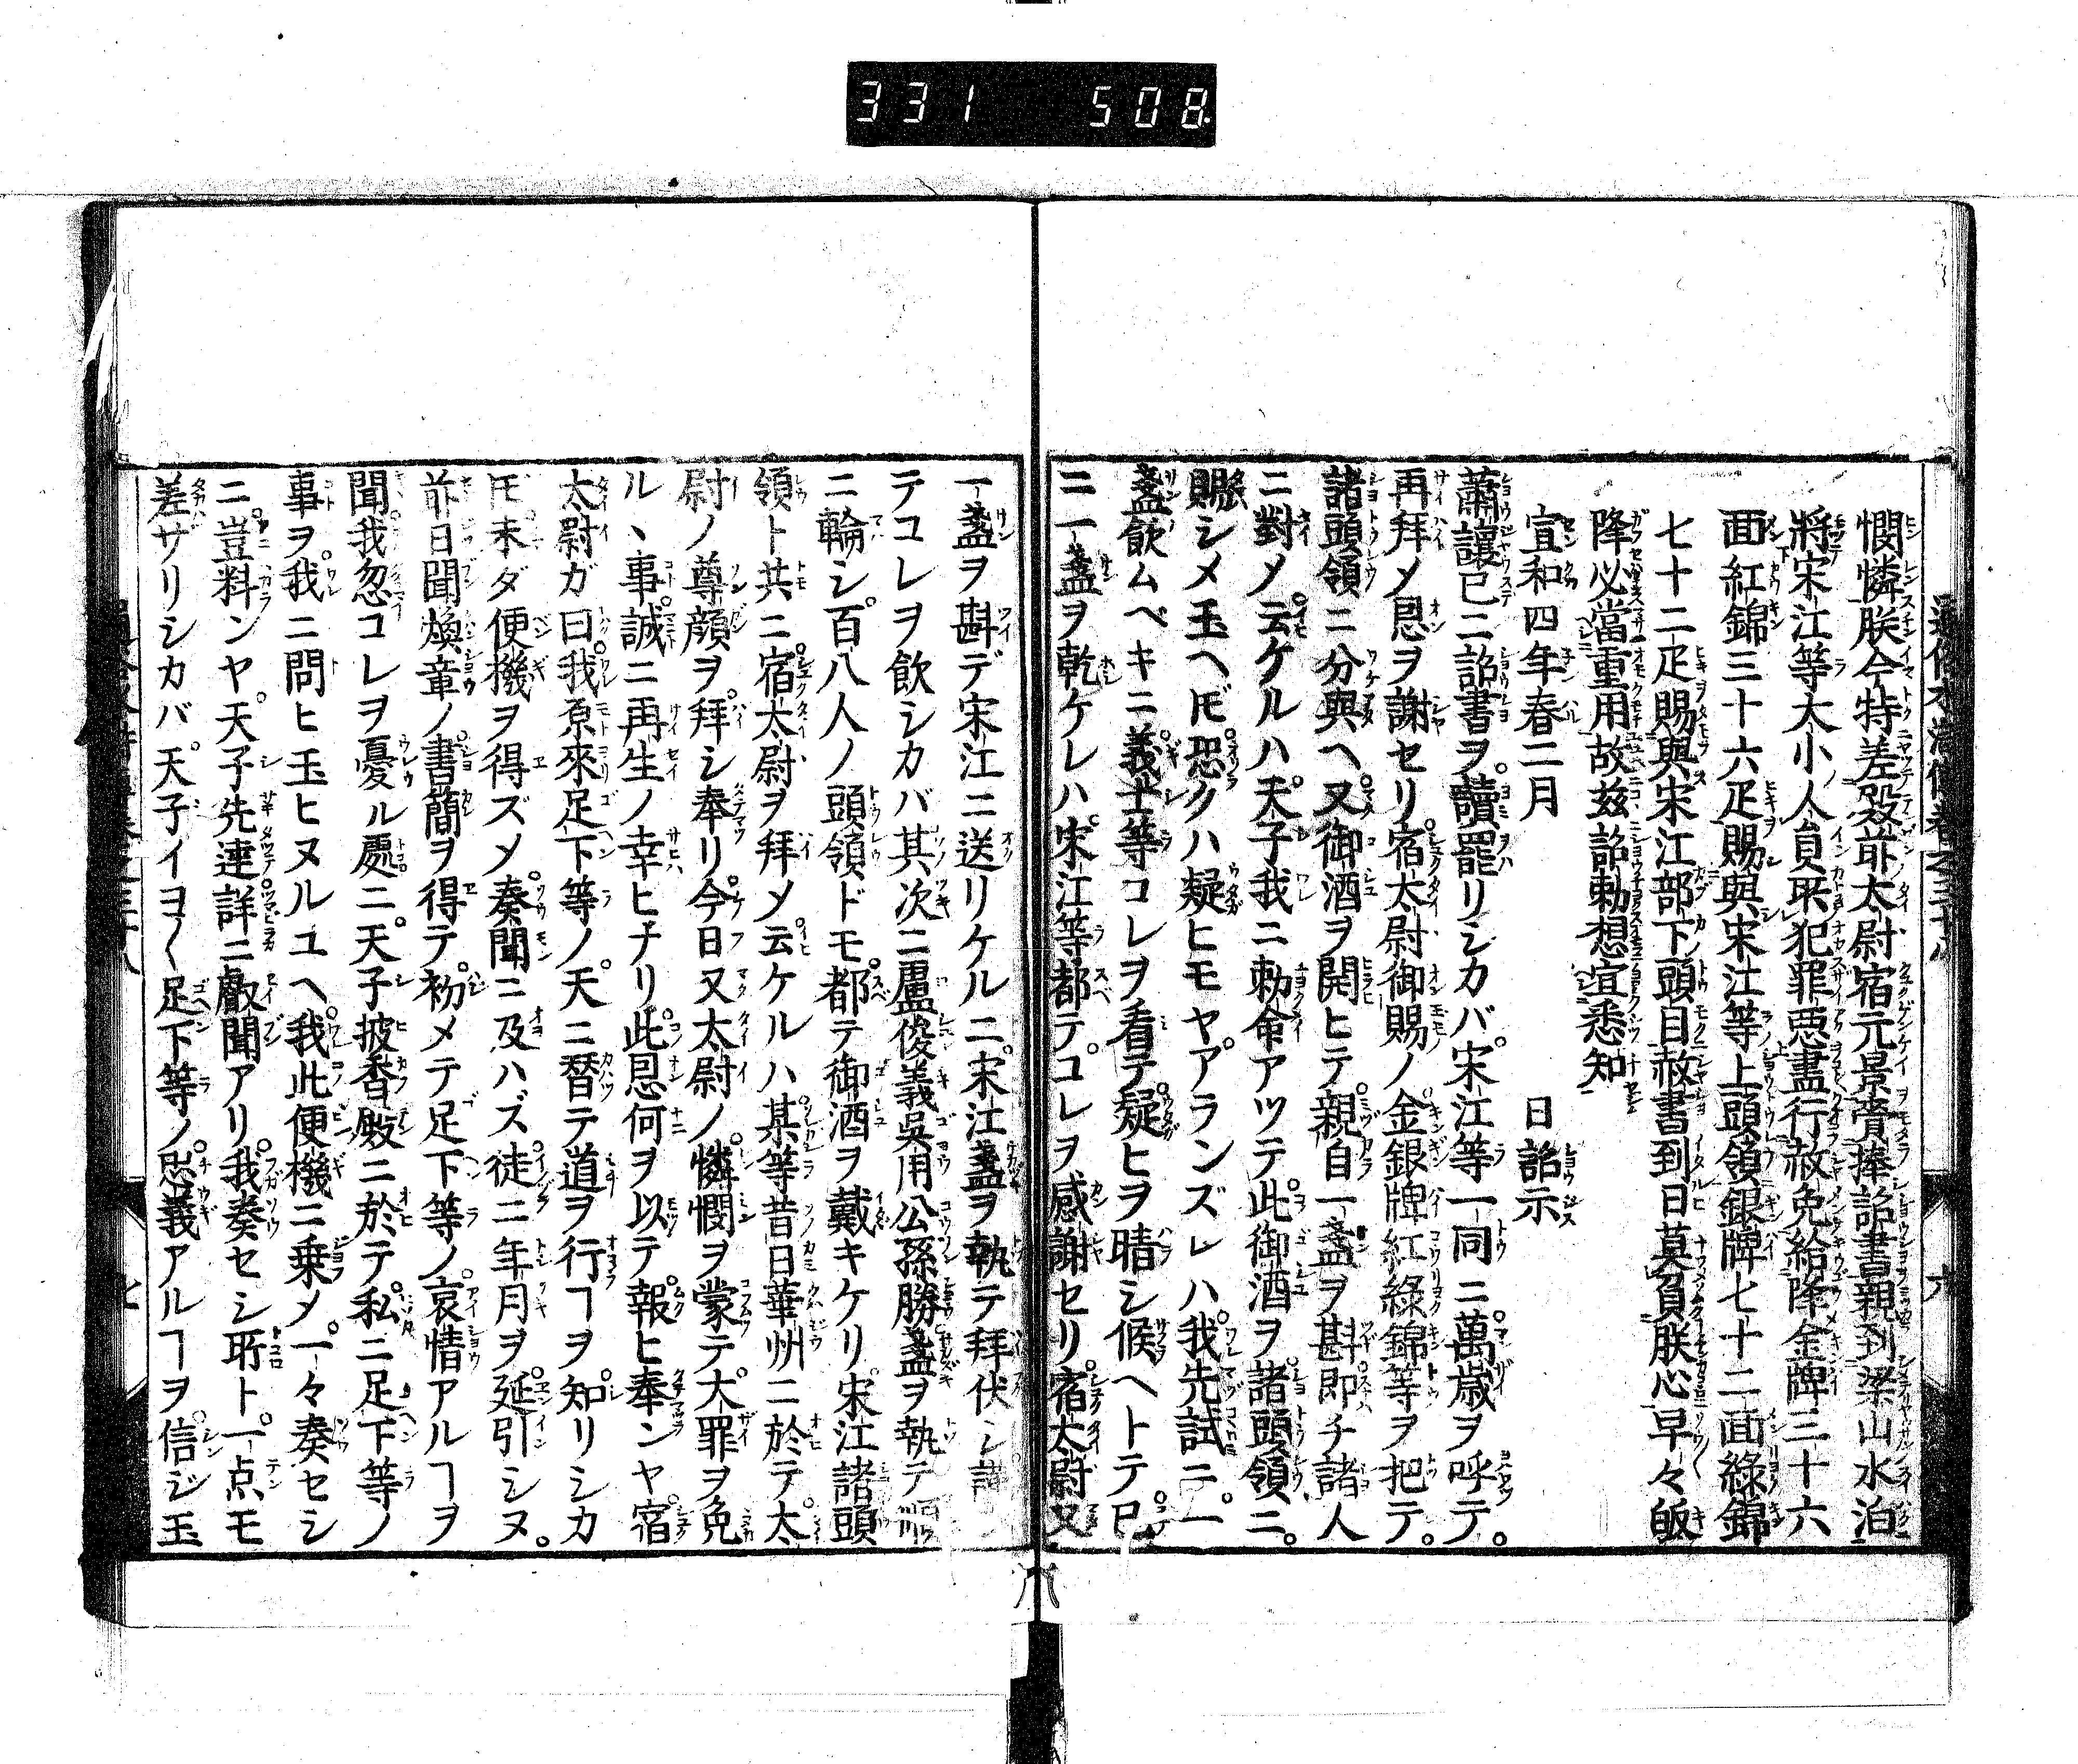 331 508
憫憐朕今特差殿前太尉宿元景齎捧詔書親到梁山水泊
將宋江等大小人員所犯罪惡盡行赦免給降金牌三十六
面紅錦三十六疋賜與宋江等上頭領銀牌七十二面綠錦
七十二疋賜與宋江部下頭目赦書到日莫負朕心早々皈
降必當重用故茲詔勅想宜悉知
宣和四年春二月 日詔示
蕭讓已ニ詔書ヲ讀罷リシカバ宋江等一同ニ萬歲ヲ呼テ。
再拜〆恩ヲ謝セリ宿太尉御賜ノ金銀牌紅綠錦等ヲ把テ。
諸頭領ニ分與ヘ又御酒ヲ開ヒテ親自一盞ヲ斟即チ諸人
ニ對〆云ケルハ天子我ニ勅命アツテ此御酒ヲ諸頭領ニ。
賜シメ玉ヘ𪜈恐クハ疑ヒモヤアランズレハ我先試ニ一
盞飲ムベキニ義士等コレヲ看テ疑ヒヲ晴シ候ヘトテ已
ニ一盞ヲ乾ケレハ宋江等都テコレヲ感謝セリ宿太尉又
一盞ヲ斟デ宋江ニ送リケルニ宋江盞ヲ執テ拜伏シ謹
テコレヲ飲シカバ其次ニ盧俊義吳用公孫勝盞ヲ執テ順
ニ輪シ百八人ノ頭領ドモ都テ御酒ヲ戴キケリ宋江諸頭
領ト共ニ宿太尉ヲ拜〆云ケルハ某等昔日華州ニ於テ太
尉ノ尊顏ヲ拜シ奉リ今日又太尉ノ憐憫ヲ蒙テ大罪ヲ免
ルヽ事誠ニ再生ノ幸ヒナリ此恩何ヲ以テ報ヒ奉ンヤ宿
太尉ガ曰我原來足下等ノ天ニ替テ道ヲ行ヿヲ知リシカ
𪜈未ダ便機ヲ得ズ〆奏聞ニ及ハズ徒ニ年月ヲ延引シヌ。
前日聞煥章ノ書簡ヲ得テ初メテ足下等ノ哀情アルヿヲ
聞我忽コレヲ憂ル處ニ天子披香殿ニ於テ私ニ足下等ノ
事ヲ我ニ問ヒ玉ヒヌルユヘ我此便機ニ乗〆一々奏セシ
ニ豈料ンヤ天子先達詳ニ叡聞アリ我奏セシ所ト一点モ
差ザリシカバ天子イヨ〱足下等ノ忠義アルヿヲ信ジ玉
通俗水滸傳卷之三十八 六
七